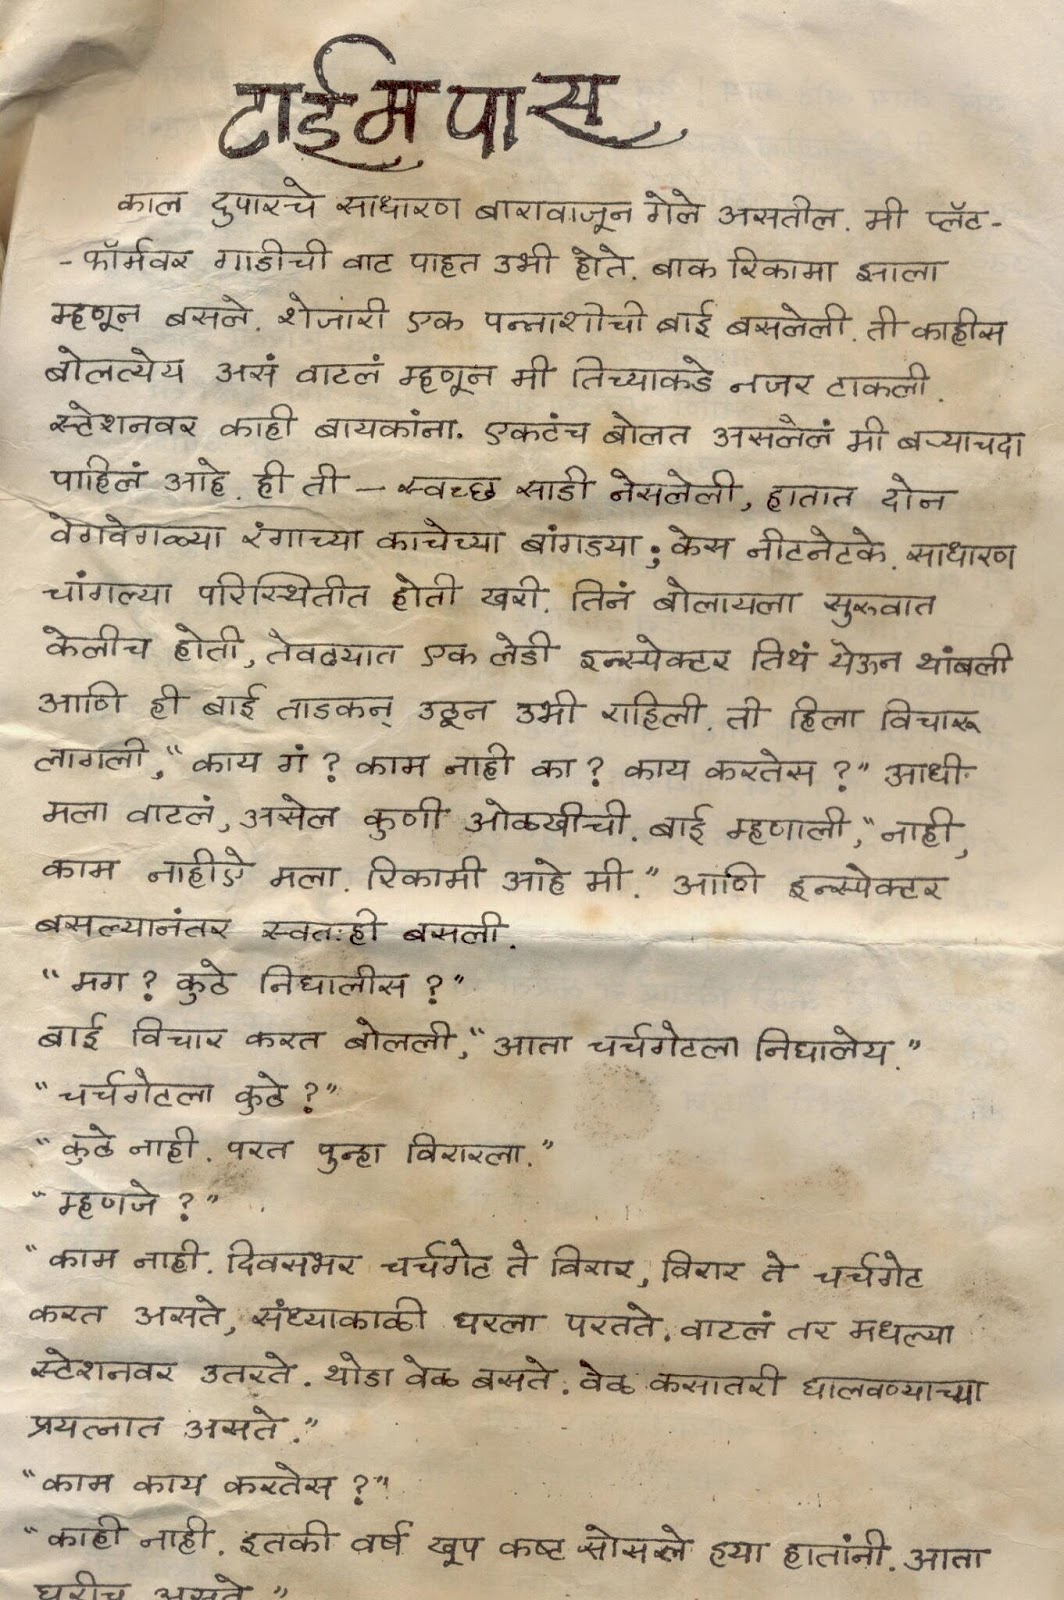 टाईमपास
काल दुपारचे साधारण बारावाजून गेले असतील. मी प्लॅट-
-फॉर्मवर गाडीची वाट पाहत उभी होते. बाक रिकामा झाला
म्हणून बसले. शेजारी एक पन्नाशीची बाई बसलेली. ती काहीस
बोलत्येय असं वाटलं म्हणून मी तिच्याकडे नजर टाकली.
स्टेशनवर काही बायकांना. एकटंच बोलत असलेलं मी बऱ्याचदा
पाहिलं आहे. ही ती – स्वच्छ साडी नेसलेली, हातात दोन
वेगवेगळ्या रंगाच्या काचेच्या बांगड्या; केस नीटनेटके. साधारण
चांगल्या परिस्थितीत होती खरी. तिनं बोलायला सुरुवात
केलीच होती, तेवढ्यात एक लेडी इन्स्पेक्टर तिथं येऊन थांबली
आणि ही बाई ताडकन् उठून उभी राहिली. ती हिला विचारू
लागली, “काय गं? काम नाही का? काय करतेस?” आधी
मला वाटलं, असेल कुणी ओळखीची. बाई म्हणाली, “नाही,
काम नाहीऐ मला. रिकामी आहे मी.” आणि इन्स्पेक्टर
बसल्यानंतर स्वतःही बसली.
“मग? कुठे निघालीस?”
बाई विचार करत बोलली, “आता चर्चगेटला निघालेय.”
“चर्चगेटला कुठे?”
“कुठे नाही. परत पुन्हा विरारला.”
“म्हणजे?”
“काम नाही. दिवसभर चर्चगेट ते विरार, विरार ते चर्चगेट
करत असते, संध्याकाळी घरला परतते. वाटलं तर मधल्या
स्टेशनवर उतरते. थोडा वेळ बसते. वेळ कसातरी घालवण्याच्या
प्रयत्नात असते.”
“काम काय करतेस?”
“काही नाही. इतकी वर्षं खूप कष्ट सोसले ह्या हातांनी. आता
घरीच असते.”